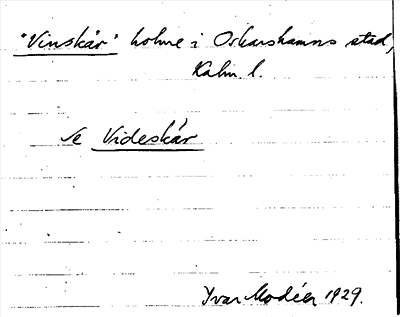 "Vinskär" holme i Oskarshamns stad,
Kalm. l.
Se Videskär
Ivar Modéer 1929.